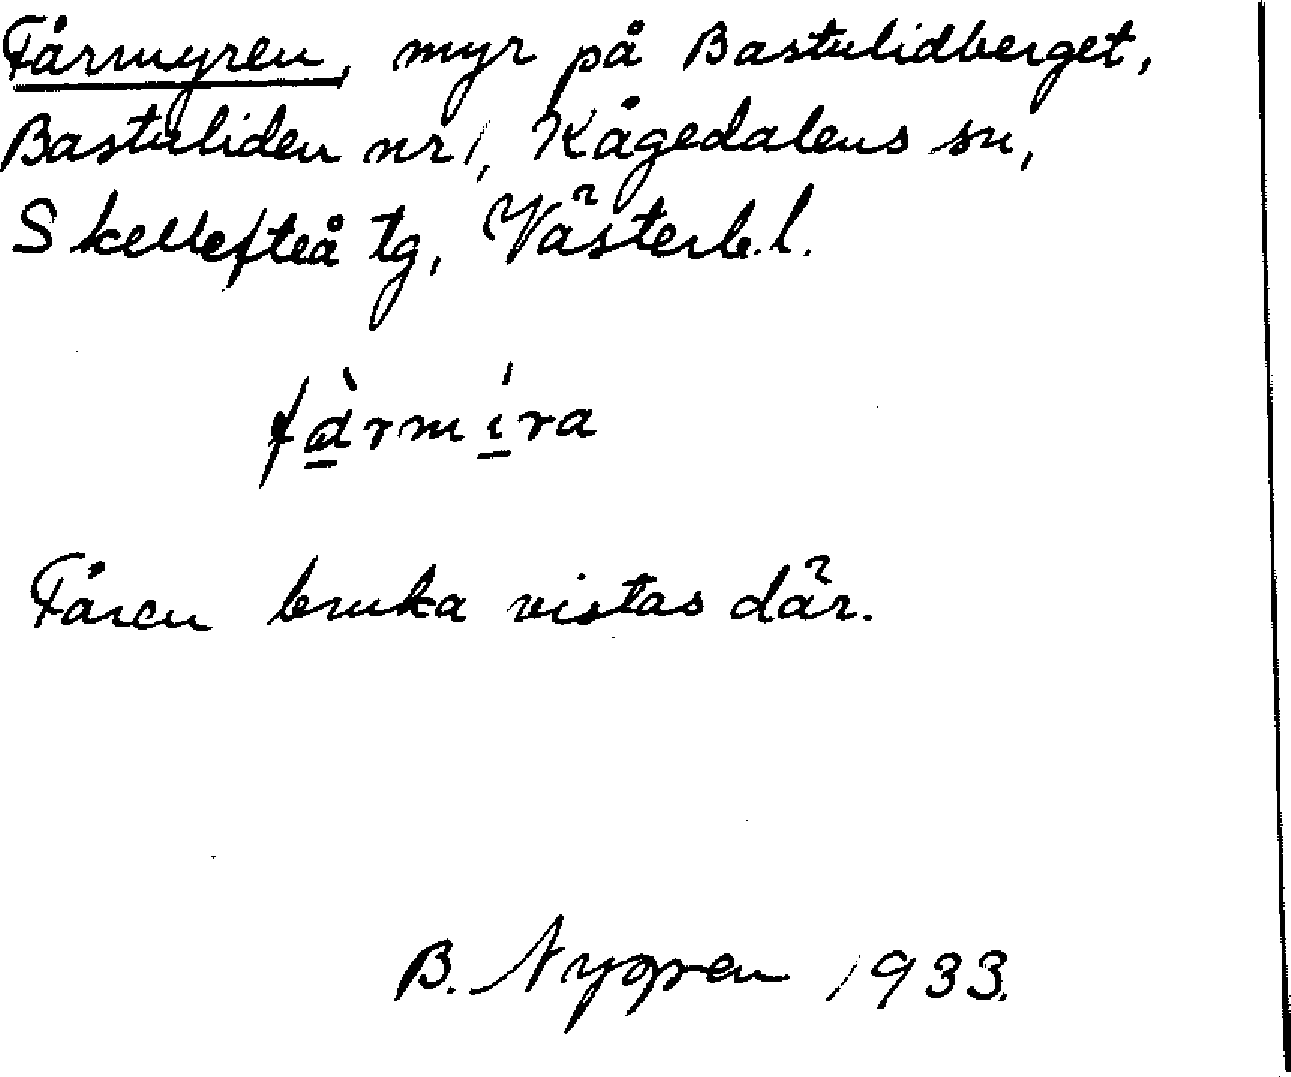 Fårmyren, myr på Bastulidberget,
Bastuliden nr 1, Kågedalens sn,
Skellefteå tg, Västerb.l.
fà̱rmí̱ra
Fåren bruka vistas där.
B. Nygren 1933.